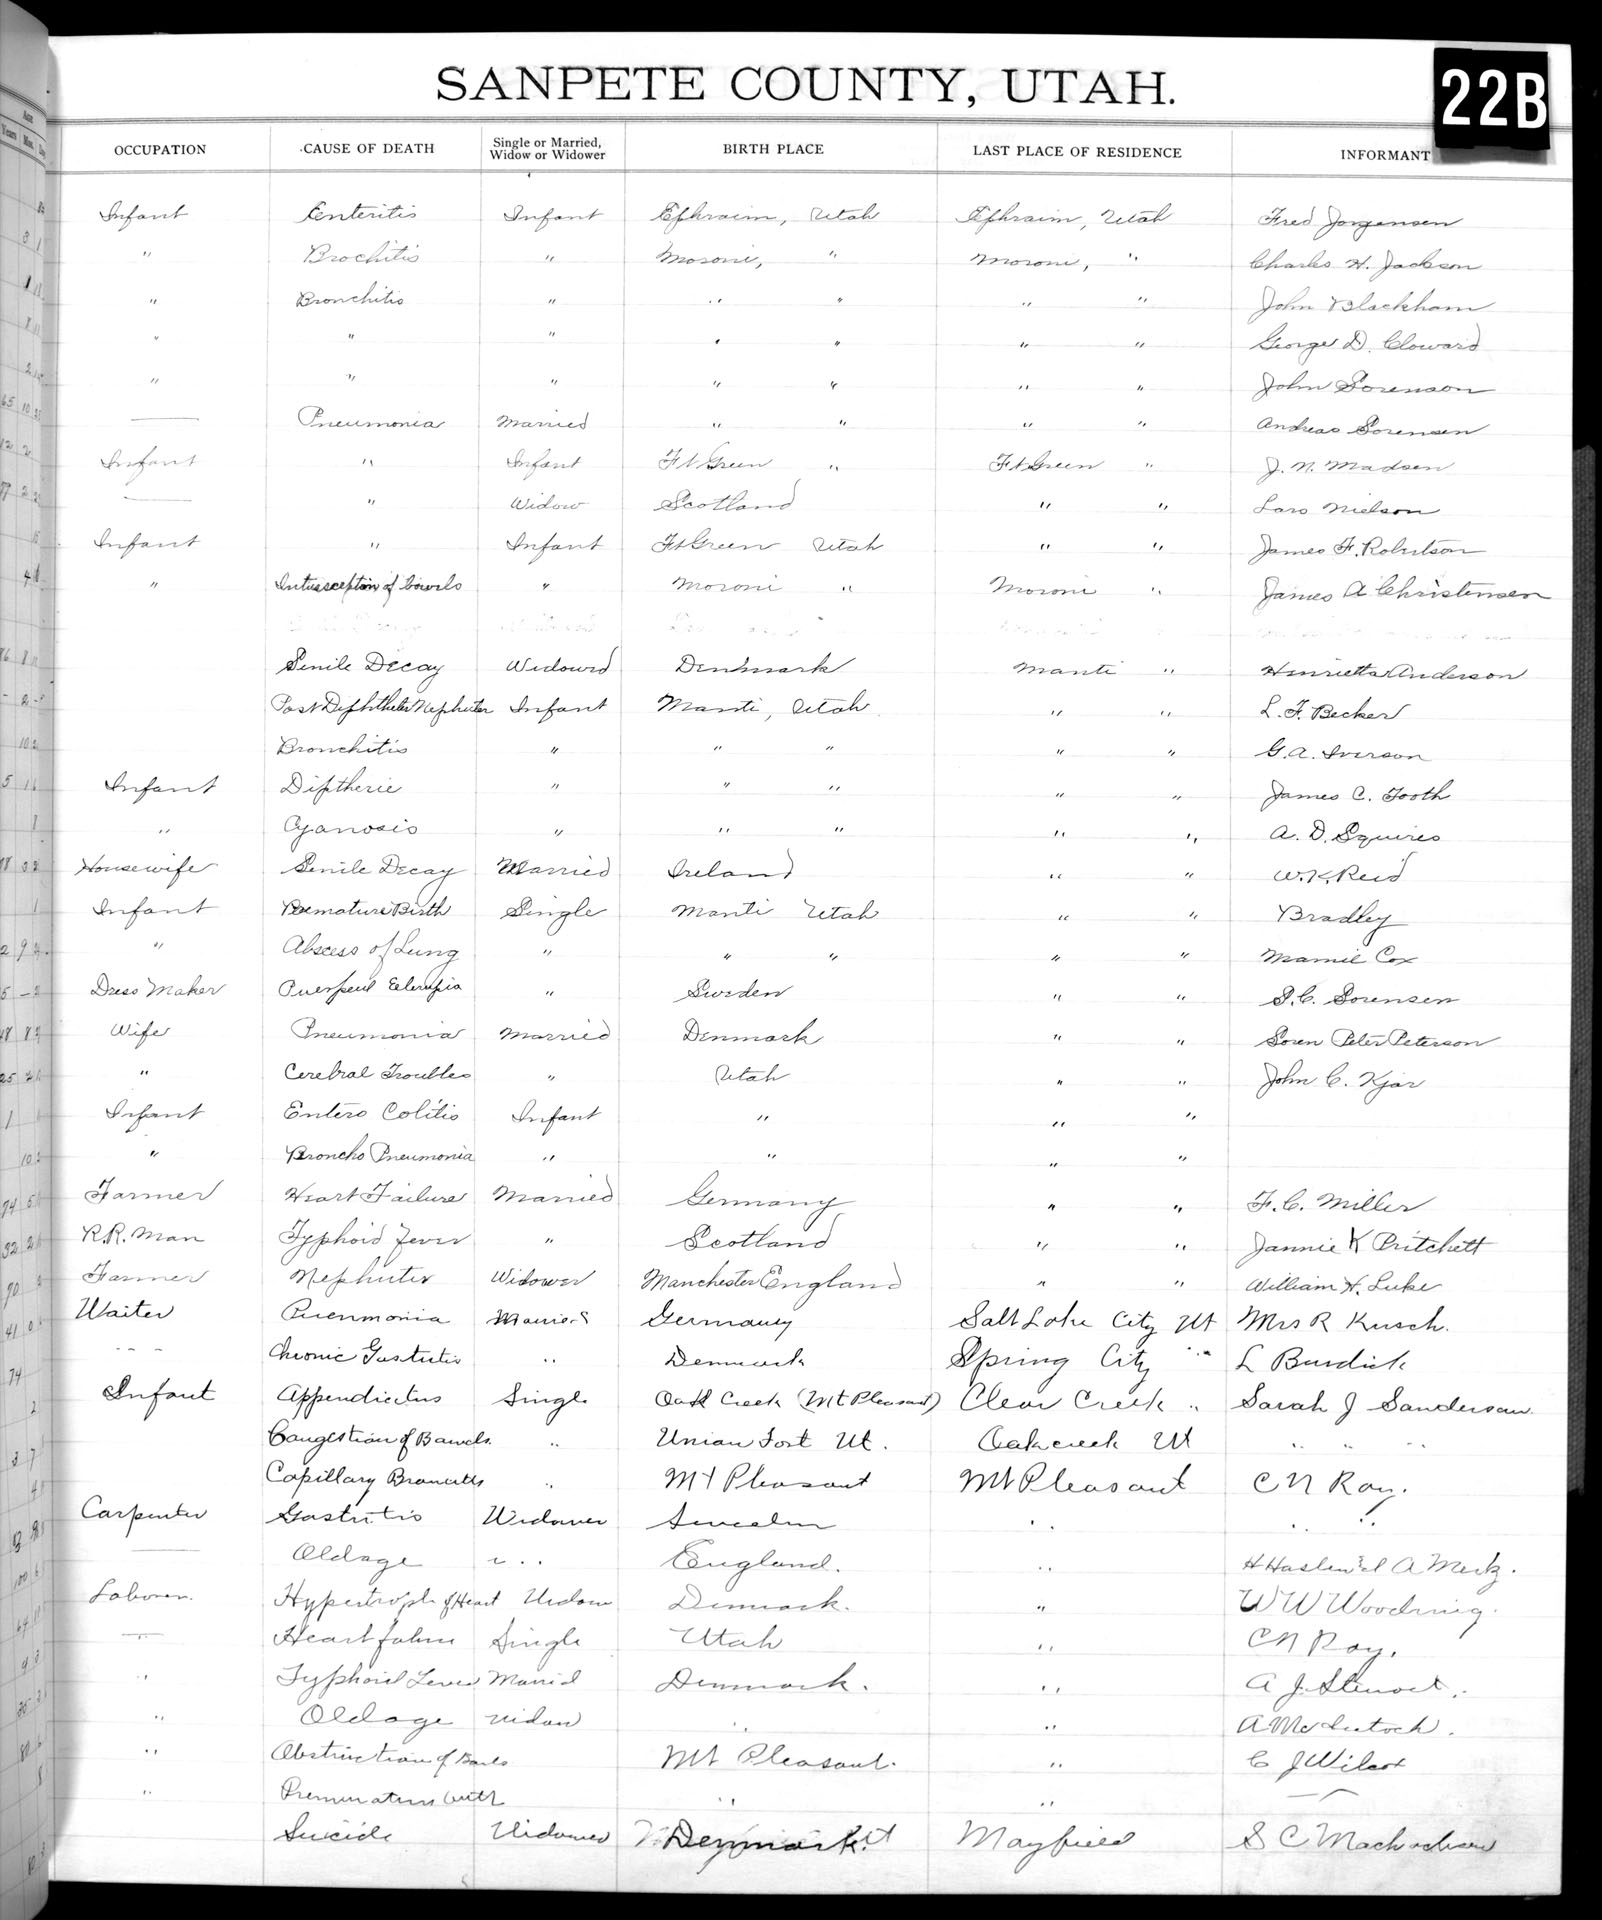 SANPETE COUNTY, UTAH.
22B
OCCUPATION CAUSE OF DEATH Single or Married, Widow or Widower BIRTH PLACE LAST PLACE OF RESIDENCE INFORMANT
Infant Enteritis Infant Ephraim, Utah Ephraim, Utah Fred Jorgensen
" Brochitis " Moroni, " Moroni, " Charles H. Jackson
" Bronchitis " " " " " John Blackham
" " " " " " " George D. Cloward
" " " " " " " John Sorenson
— Pneumonia Married " " " " Andreas Sorensen
Infant " Infant Ft Green " Ft Green " J. N. Madsen
— " Widow Scotland " " Lars Nielson
Infant " Infant Ft Green Utah " " James F. Robertson
" Intussception of bowels " Moroni " Moroni " James A Christensen
Senile Decay Widowed Denmark Manti " Henrietta Anderson
Post Infant Manti, Utah " " L. F. Becker
Bronchitis " " " " " G. A. Iverson
Infant Diptherie " " " " " James C. Tooth
" Cyanosis " " " " " A. D. Squires
Housewife Senile Decay Married Ireland " " W. K. Reid
Infant Premature Birth Single Manti Utah " " Bradley
" Abscess of Lung " " " " " Mamie Cox
Dress Maker " Sweden " " S. C. Sorensen
Wife Pneumonia Married Denmark " " Soren Peter Peterson
" Cerebral Troubles " Utah " " John C. Kjar
Infant Entero Colitis Infant " " "
" Broncho Pneumonia " " " "
Farmer Heart Failure Married Germany " " F. C. Miller
R.R. Man Typhoid Fever " Scotland " " Jannie K Pritchett
Farmer Widower Manchester England " " William H. Luke
Waiter Married Germany Salt Lake City Ut Mrs R Kusch.
Chronic Denmark Spring City " L Burdick
Infant Single Oak Creek (Mt Pleasant) Clear Creek " Sarah J Sanderson
Congestion of Bowels. " Union Fort Ut. Oak creek Ut " " "
Capillary " Mt Pleasant Mt Pleasant C N Ray.
Carpenter Gastritis Widower " "
— Old age " England. "
Laborer. of Heart Denmark. " W W Woodring.
— Heart Single Utah " C N Ray.
" Typhoid Fever Married Denmark. " A J Stewart.
" Old age Widow " " A
" Obstruction of Mt Pleasant. " C J Wilcox
" " "
Suicide Widowed Denmark Mayfield S C